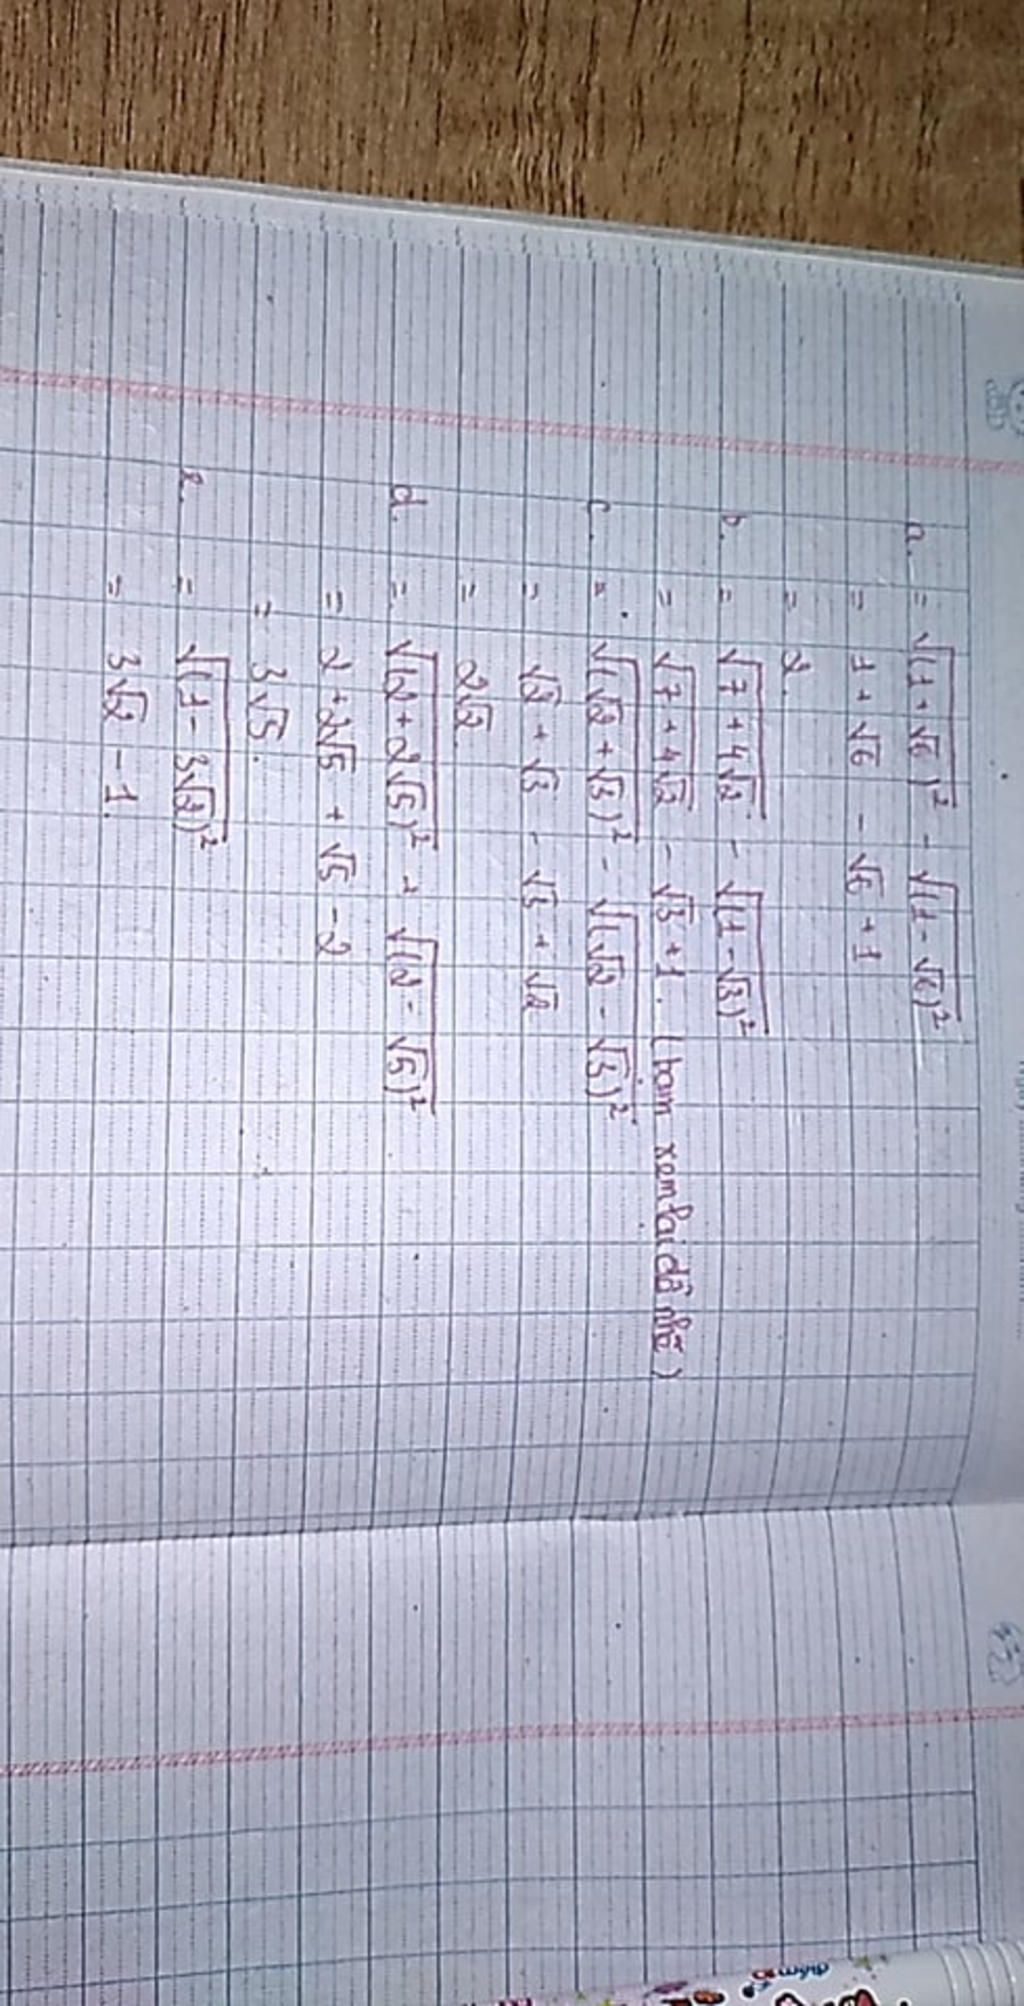 a. = √(1+√6)² - √(1-√6)²
= 1+√6 - √6+1
= 2.
b. = √7+4√2 - √(1-√3)²
= √7+4√2 - √3+1. (bạn xem lại đề nhé)
c. = √(√2+√3)² - √(√2-√3)²
= √2+√3 - √3+√2
= 2√2.
d. = √(2+2√5)² + √(2-√5)²
= 2+2√5 + √5-2
= 3√5.
e. = √(1-3√2)²
= 3√2 - 1.